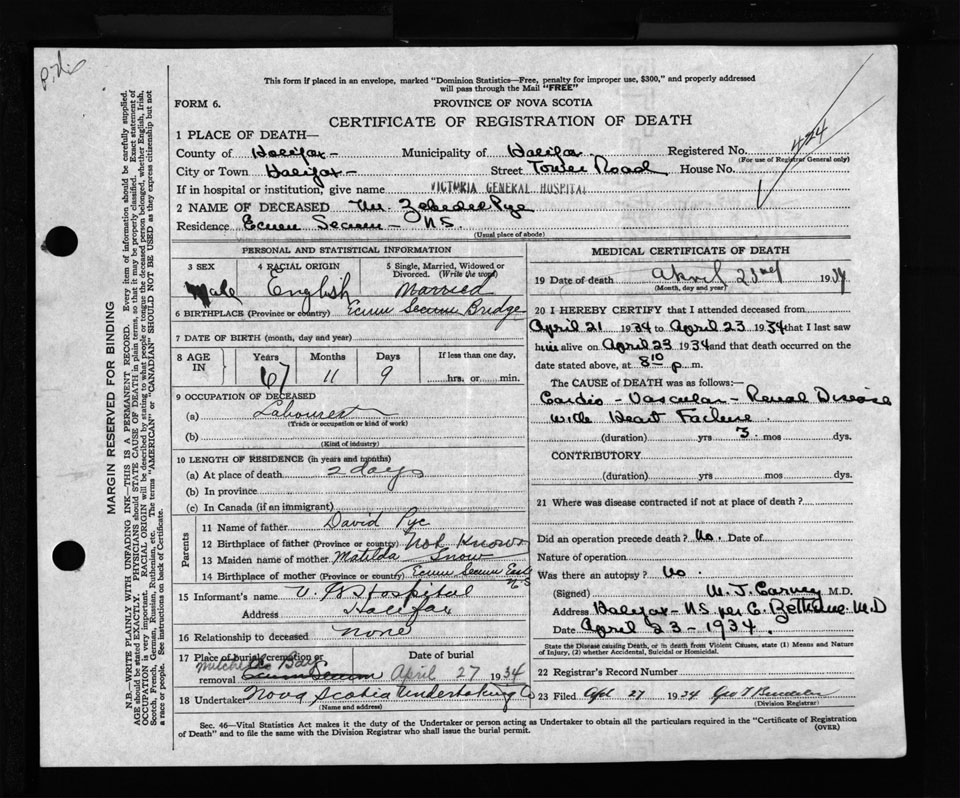 This form if placed in an envelope, marked "Dominion Statistics—Free, penalty for improper use, $300," and properly addressed
will pass through the Mail "FREE"
FORM 6.
PROVINCE OF NOVA SCOTIA
CERTIFICATE OF REGISTRATION OF DEATH
1 PLACE OF DEATH—
County of Halifax - Municipality of Halifax. Registered No. 424
(For use of Registrar General only)
City or Town Halifax - Street Tower Road House No.
If in hospital or institution, give name VICTORIA GENERAL HOSPITAL
2 NAME OF DECEASED Mr. Zebedee Pye
Residence Ecum Secum - N.S.
(Usual place of abode)
PERSONAL AND STATISTICAL INFORMATION
3 SEX 4 RACIAL ORIGIN 5 Single, Married, Widowed or
Divorced. (Write the word)
Male English Married
6 BIRTHPLACE (Province or country) Ecum Secum Bridge
7 DATE OF BIRTH (month, day and year)
8 AGE IN Years Months Days If less than one day,
67 11 9 hrs. or min.
9 OCCUPATION OF DECEASED
(a) Labourer
(Trade or occupation or kind of work)
(b)
(Kind of industry)
10 LENGTH OF RESIDENCE (in years and months)
(a) At place of death 2 days
(b) In province
(c) In Canada (if an immigrant)
Parents
11 Name of father David Pye
12 Birthplace of father (Province or country) Not Known
13 Maiden name of mother Matilda Snow
14 Birthplace of mother (Province or country) Ecum Secum East
N.S
15 Informant's name V. G. Hospital
Address Halifax
16 Relationship to deceased none
17 Place of burial, cremation or removal Date of burial
Ecum Secum April 27 1934
18 Undertaker Nova Scotia Undertaking Co
(Name and address)
MEDICAL CERTIFICATE OF DEATH
19 Date of death April 23rd 1934
(Month, day and year)
20 I HEREBY CERTIFY that I attended deceased from
April 21 1934 to April 23 1934 that I last saw
him alive on April 23 1934 and that death occurred on the
date stated above, at 8 10 p m.
The CAUSE of DEATH was as follows:—
Cardio - Vascular - Renal Disease
with Heart Failure
(duration) yrs 3 mos dys.
CONTRIBUTORY
(duration) yrs mos dys.
21 Where was disease contracted if not at place of death?
Did an operation precede death? No. Date of
Nature of operation
Was there an autopsy? No.
(Signed) W. J. Carney M.D.
Address Halifax - N.S. per C. Bethune M.D
Date April 23 - 1934.
State the Disease causing Death, or in death from Violent Causes, state (1) Means and Nature
of Injury, (2) whether Accidental, Suicidal or Homicidal.
22 Registrar's Record Number
23 Filed Apl 27 1934
(Division Registrar)
Sec. 46—Vital Statistics Act makes it the duty of the Undertaker or person acting as Undertaker to obtain all the particulars required in the "Certificate of Registration
of Death" and to file the same with the Division Registrar who shall issue the burial permit.
(OVER)
MARGIN RESERVED FOR BINDING
N.B.—WRITE PLAINLY WITH UNFADING INK—THIS IS A PERMANENT RECORD. Every item of information should be carefully supplied.
AGE should be stated EXACTLY. PHYSICIANS should STATE CAUSE OF DEATH in plain terms, so that it may be properly classified. Exact statement of
OCCUPATION is very important. RACIAL ORIGIN will be described by stating to what people or tongue the deceased person belonged, whether English, Irish,
Scotch, French, German, Russian, Ruthenian, etc. The terms "AMERICAN" or "CANADIAN" SHOULD NOT BE USED as they express citizenship but not
a race or people. See instructions on back of Certificate.